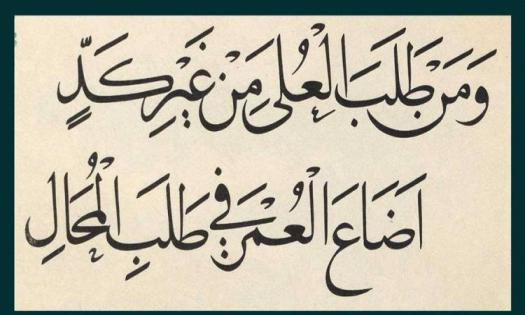 وَمَنْ طَلَبَ الْعُلَى مِنْ غَيْرِ كَدٍّ
اَضَاعَ الْعُمْرَ فِي طَلَبِ الْمُحَالِ